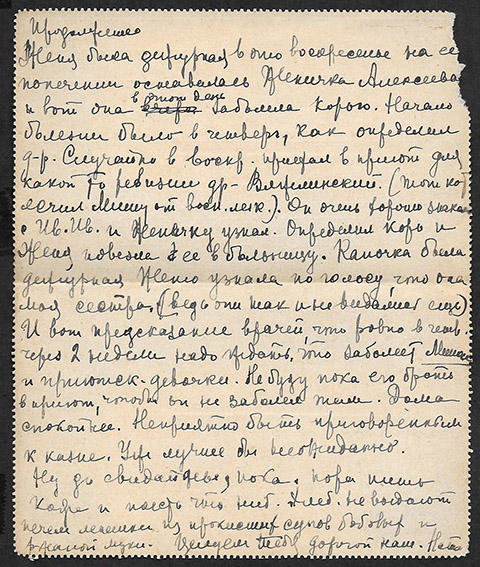 Продолжение
Женя была дежурная в это воскресенье на ее
попечении оставалась Женичка Алексеева
и вот она в этот день заболела корью. Начало
болезни было в четверг, как определил
д-р. Случайно в воскр. приехал в приют для
какой то ревизии др-
лечил Мишу от восп. легк.). Он очень хорошо знаком
с Ив. Ив. и Женичку узнал. Определил корь и
Женя повезла ее в больницу. Капочка была
дежурная Женю узнала по голосу, что она
моя сестра. (Ведь они так и не видались еще)
И вот предсказание врачей, что ровно в четв.
через 2 недели надо ждать, что заболеет Миша
и приютск. девочки. Не буду пока его брать
в приют, чтобы он не заболел там. Дома
спокойнее. Неприятно быть приговоренным
к казне. Уж лучше бы неожиданно.
Ну до свиданья, пока. пора пить
кофе и поесть что ниб. Хлеб. не выдают
печем лепешки из прокисших супов бобовых и
ржаной муки. Целуем тебя дорогой наш. Ната